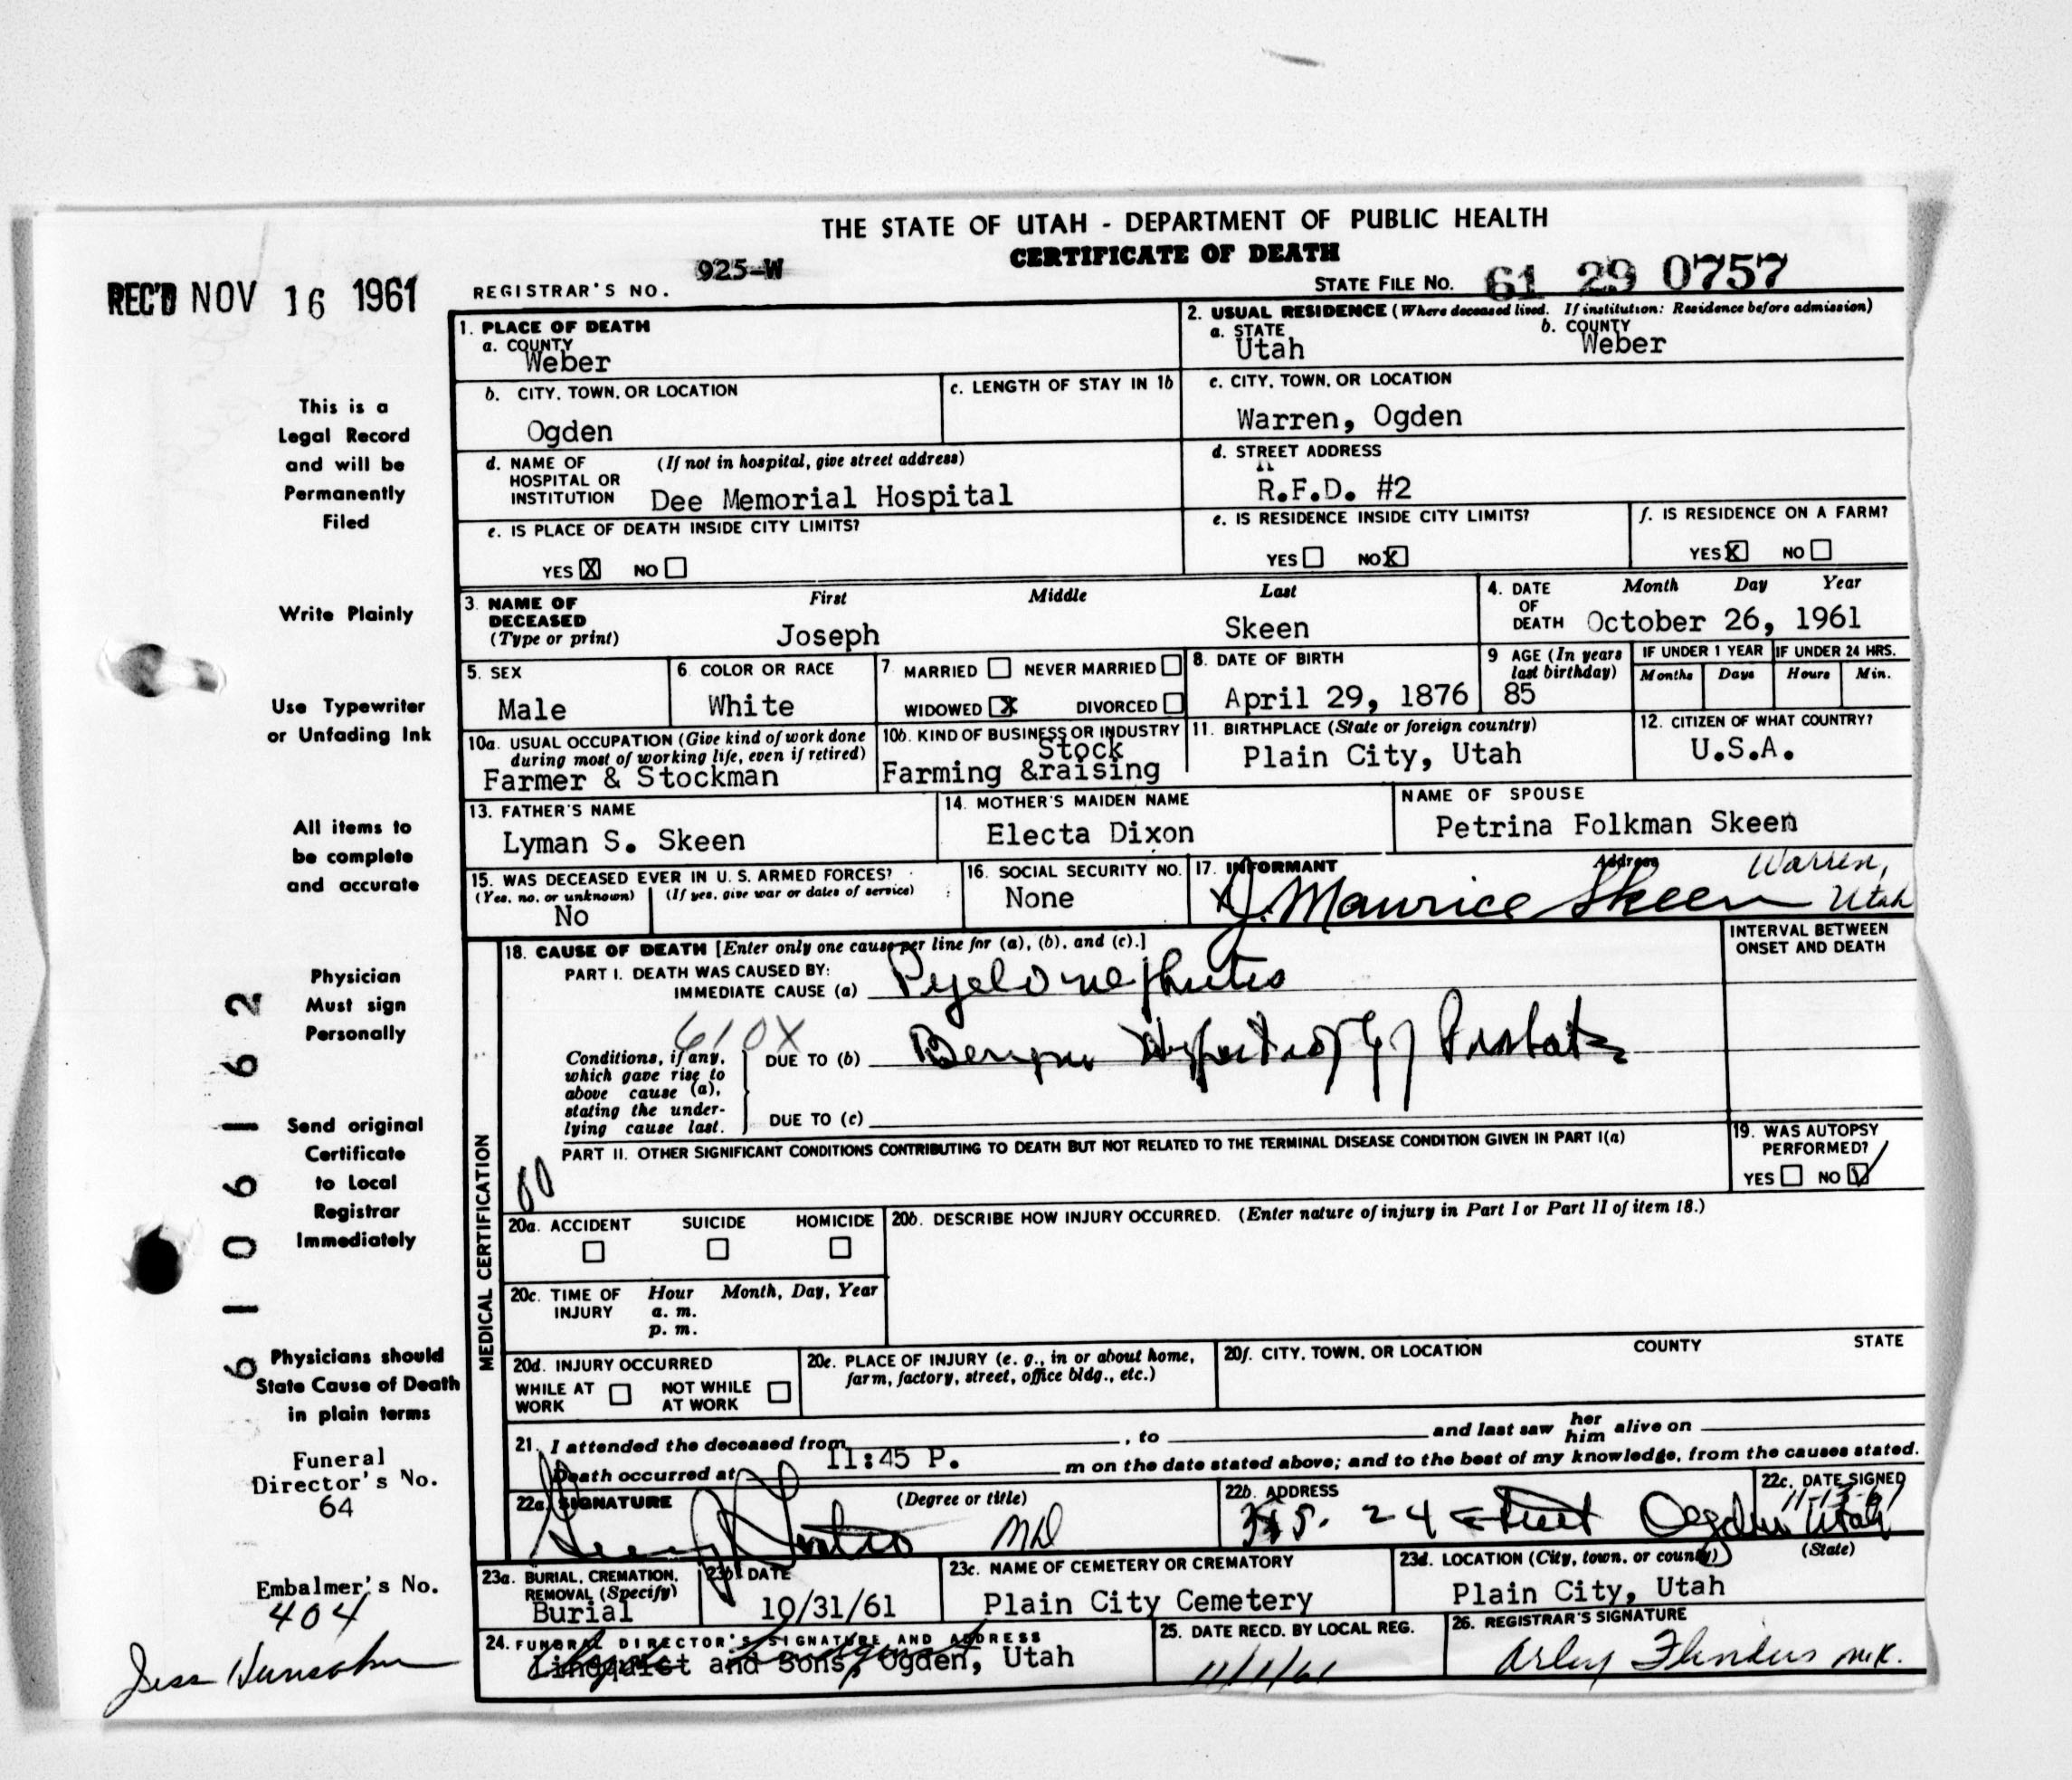 THE STATE OF UTAH - DEPARTMENT OF PUBLIC HEALTH
CERTIFICATE OF DEATH
REC'D NOV 16 1961
REGISTRAR'S NO. 925-W
STATE FILE NO. 61 29 0757
1. PLACE OF DEATH
a. COUNTY
Weber
2. USUAL RESIDENCE (Where deceased lived. If institution: Residence before admission)
a. STATE
Utah
b. COUNTY
Weber
b. CITY, TOWN, OR LOCATION
Ogden
c. LENGTH OF STAY IN 1b
c. CITY, TOWN, OR LOCATION
Warren, Ogden
d. NAME OF HOSPITAL OR INSTITUTION
(If not in hospital, give street address)
Dee Memorial Hospital
d. STREET ADDRESS
R.F.D. #2
e. IS PLACE OF DEATH INSIDE CITY LIMITS?
YES X NO
e. IS RESIDENCE INSIDE CITY LIMITS?
YES NO X
f. IS RESIDENCE ON A FARM?
YES X NO
3. NAME OF DECEASED
(Type or print)
First Middle Last
Joseph Skeen
4. DATE OF DEATH
Month Day Year
October 26, 1961
5. SEX
Male
6. COLOR OR RACE
White
7. MARRIED NEVER MARRIED
WIDOWED X DIVORCED
8. DATE OF BIRTH
April 29, 1876
9 AGE (In years last birthday)
85
IF UNDER 1 YEAR
Months Days
IF UNDER 24 HRS.
Hours Min.
10a. USUAL OCCUPATION (Give kind of work done during most of working life, even if retired)
Farmer & Stockman
10b. KIND OF BUSINESS OR INDUSTRY
Stock
Farming &raising
11. BIRTHPLACE (State or foreign country)
Plain City, Utah
12. CITIZEN OF WHAT COUNTRY?
U.S.A.
13. FATHER'S NAME
Lyman S. Skeen
14. MOTHER'S MAIDEN NAME
Electa Dixon
NAME OF SPOUSE
Petrina Folkman Skeen
15. WAS DECEASED EVER IN U. S. ARMED FORCES?
(Yes, no, or unknown) (If yes, give war or dates of service)
No
16. SOCIAL SECURITY NO.
None
17. INFORMANT Address
X J. Maurice Skeen Warren, Utah
MEDICAL CERTIFICATION
18. CAUSE OF DEATH [Enter only one cause per line for (a), (b), and (c).]
INTERVAL BETWEEN ONSET AND DEATH
PART I. DEATH WAS CAUSED BY:
IMMEDIATE CAUSE (a) Pyelonephritis
610X
Conditions, if any, which gave rise to above cause (a), stating the underlying cause last.
DUE TO (b) Benign Hypertrophy of Prostate
DUE TO (c)
PART II. OTHER SIGNIFICANT CONDITIONS CONTRIBUTING TO DEATH BUT NOT RELATED TO THE TERMINAL DISEASE CONDITION GIVEN IN PART I(a)
19. WAS AUTOPSY PERFORMED?
YES NO
20a. ACCIDENT SUICIDE HOMICIDE
20b. DESCRIBE HOW INJURY OCCURRED. (Enter nature of injury in Part I or Part II of item 18.)
20c. TIME OF INJURY
Hour Month, Day, Year
a. m.
p. m.
20d. INJURY OCCURRED
WHILE AT WORK NOT WHILE AT WORK
20e. PLACE OF INJURY (e. g., in or about home, farm, factory, street, office bldg., etc.)
20f. CITY, TOWN, OR LOCATION COUNTY STATE
21. I attended the deceased from , to and last saw her him alive on
Death occurred at 11:45 P. m on the date stated above; and to the best of my knowledge, from the causes stated.
22a. SIGNATURE (Degree or title)
MD
22b. ADDRESS
24 Street Ogden Utah
22c. DATE SIGNED
11-13-61
23a. BURIAL, CREMATION, REMOVAL (Specify)
Burial
23b. DATE
10/31/61
23c. NAME OF CEMETERY OR CREMATORY
Plain City Cemetery
23d. LOCATION (City, town, or county) (State)
Plain City, Utah
24. FUNERAL DIRECTOR'S SIGNATURE AND ADDRESS
Lindquist and Sons, Ogden, Utah
25. DATE RECD. BY LOCAL REG.
11/1/61
26. REGISTRAR'S SIGNATURE
Arley Flinders
This is a
Legal Record
and will be
Permanently
Filed
Write Plainly
Use Typewriter
or Unfading Ink
All items to
be complete
and accurate
Physician
Must sign
Personally
Send original
Certificate
to Local
Registrar
Immediately
Physicians should
State Cause of Death
in plain terms
Funeral
Director's No.
64
Embalmer's No.
404
6106162